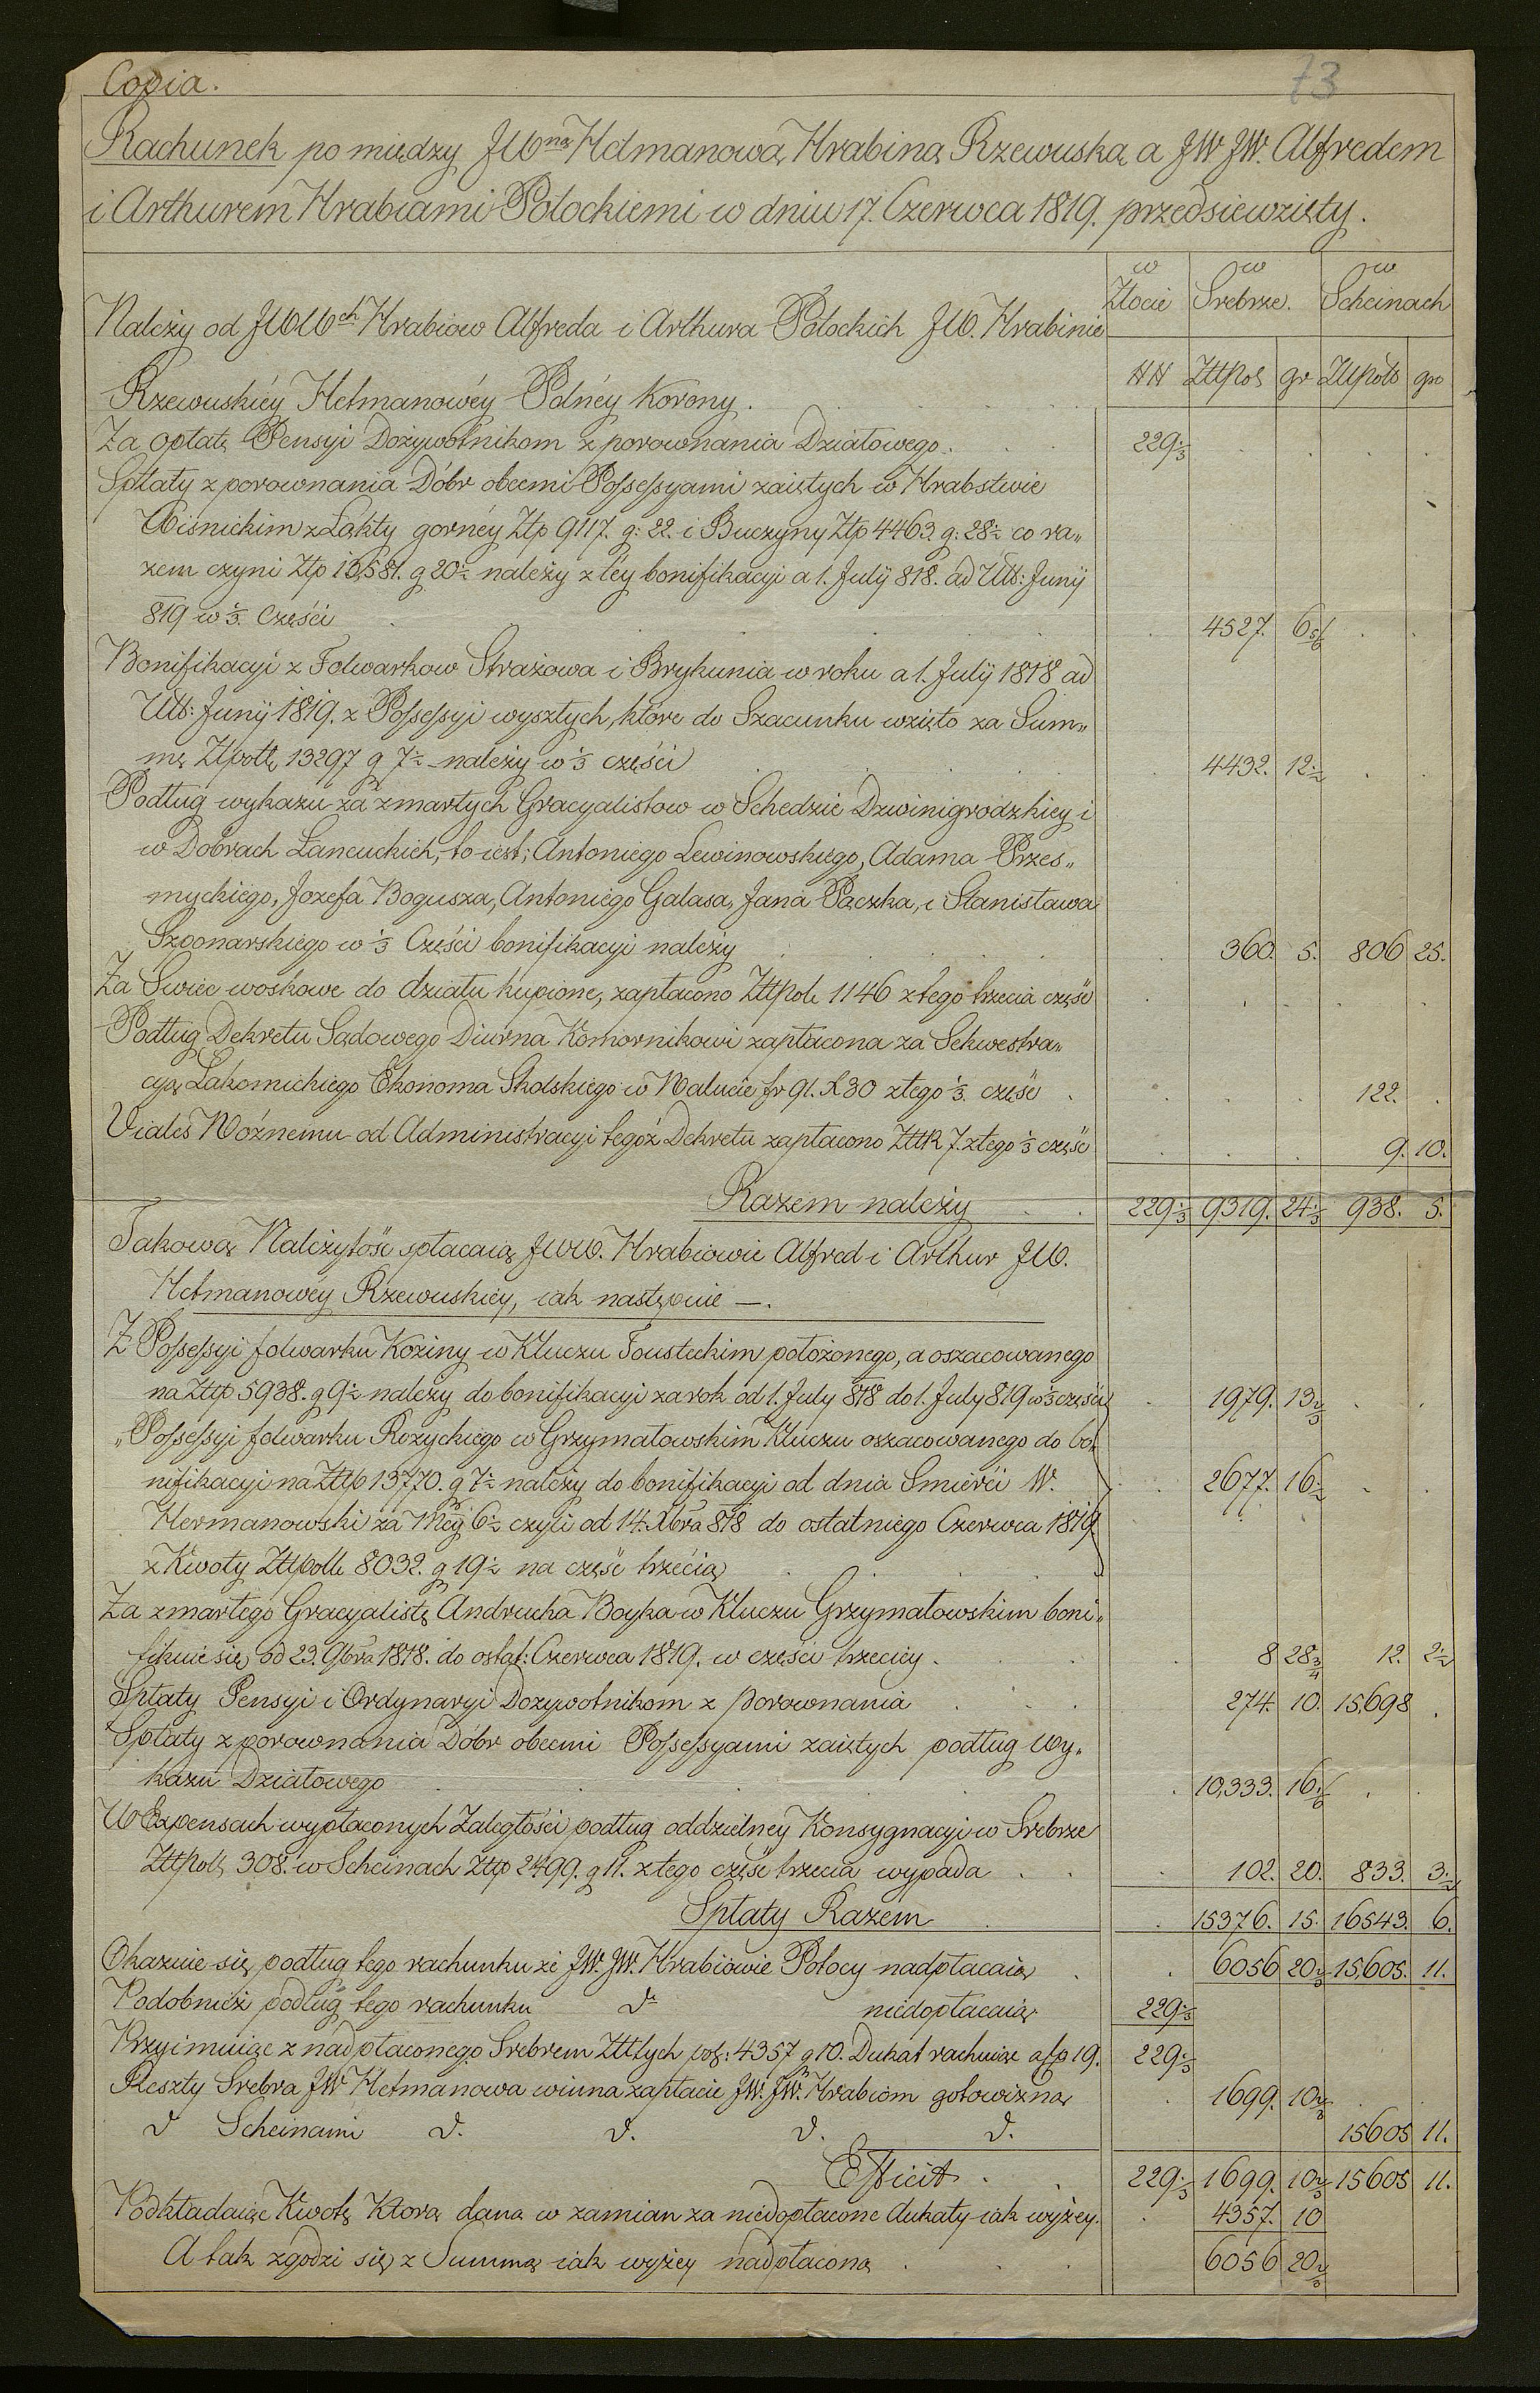 Copia.
73
Rachunek po między JWną Hetmanową Hrabiną Rzewuską a JW JW. Alfredem
i Arthurem Hrabiami Potockiemi w dniu 17. Czerwca 1819. przedsiewzięty.
w Złocie | w Srebrze. | w Scheinach
Należy od JWWch Hrabiow Alfreda i Arthura Potockich JW. Hrabinie
## | Złtpol | gr | Złtpols | gr
Rzewuskiéy Hetmanowéy Polnéy Korony.
Za opłatę Pensyi Dożywotnikom z porownania Działowego. 229⅓
Spłaty z porownania Dóbr obcemi Possessyami zaiętych w Hrabstwie
Wisnickim z Łąkty gornéy Złp 9117. g: 22. i Buczyny Złp 4463. g: 28½ co ra„
zem czyni Złp 13,581. g 20½ należy z téy bonifikacyi a 1. Julÿ 818. ad Ult: Junÿ
819 w ⅓. Części 4527. 6⅚
Bonifikacyi z Folwarkow Strażowa i Brykunia w roku a 1. Julÿ 1818 ad
Ult: Junÿ 1819. z Possessyi wyszłych, które do Szacunku wzięto za Sum„
mę Złpolł 13297 g 7½ należy w ⅓ części 4432. 12½
Podług wykazu za zmarłych Gracyalistow w Schedzie Dzwinigrodzkiey i
w Dobrach Łancuckich, to iest; Antoniego Lewinowskiego, Adama Przes„
myckiego, Jozefa Bogusza, Antoniego Galasa, Jana Pączka, i Stanisława
Szponarskiego w ⅓ Części bonifikacyi należy 360. 5. 806 25.
Za Swiéc woskowe do działu kupione, zapłacono Złtpol. 1146 z tego trzecia część
Podług Dekretu Sądowego Diurna Komornikowi zapłacona za Sekwestra„
cyą Łakomickiego Ekonoma Skolskiego w Walucie fr 91. X 30 z tego ⅓. część 122.
Viales Wóźnemu od Administracyi tegoż Dekretu zapłacono Złtk 7. z tego ⅓ część 9. 10.
Razem należy 229⅓ 9319. 24⅓ 938. 5.
Takową Należytość spłacaią JWW. Hrabiowie Alfred i Arthur JW.
Hetmanowéy Rzewuskiey, iak następuie —.
Z Possessyi folwarku Koziny w Kluczu Tousteckim położonego, a oszacowanego
na Złtp 5938. g 9½ należy do bonifikacyi za rok od 1. July 818 do 1. July 819 w ⅓ części 1979. 13⅔
„Possessyi folwarku Rożyckiego w Grzymałowskim Kluczu oszacowanego do bo„
nifikacyi na Złtp 13770. g 7½ należy do bonifikacyi od dnia Smierći W. 2677. 16½
Hermanowski za Mcy 6½ czyli od 14. Xbra 818 do ostatniego Czerwca 1819.
z Kwoty Złtpolł 8032. g 19½ na część trzécią
Za zmarłego Gracyalistę Andrucha Boyka w Kluczu Grzymałowskim boni„
fikuie się od 23. 9bra 1818. do ostat: Czerwca 1819. w części trzeciey. 8 28¾ 12. 2½
Spłaty Pensyi i Ordynaryi Dozywotnikom z porownania 274. 10. 15,698
Spłaty z porownania Dóbr obcemi Possessyami zaiętych podług Wy„
kazu Działowego 10,333. 16⅙
W Expensach wypłaconych Zaległości podług oddzielney Konsygnacyi w Srebrze
Złtpolł 308. w Scheinach Złtp 2499. g 11. z tego część trzecia wypada 102. 20. 833. 3½
Spłaty Razem 15376. 15. 16543. 6.
Okazuie się podług tego rachunku że JW. JW. Hrabiowie Potocy nadpłacaią 6056 20⅔ 15,605. 11.
Podobnież podług tego rachunku do niedopłacaią 229⅓
Przyimuiąc z nadpłaconego Srebrem Złtłych pol: 4357 g 10. Dukat rachuiąc a złp 19. 229⅓
Reszty Srebra JW Hetmanowa winna zapłacić JW. JW. Hrabiom gotowizną 1699. 10⅔
d Scheinami d. d. d. d. 15605 11.
Efficit 229⅓ 1699. 10⅔ 15605 11.
Podkładaiąc Kwotę Ktora dana w zamian za niedopłacone dukaty iak wyżey. 4357. 10
A tak zgodzi się z Summą iak wyżey nadpłaconą 6056 20⅔